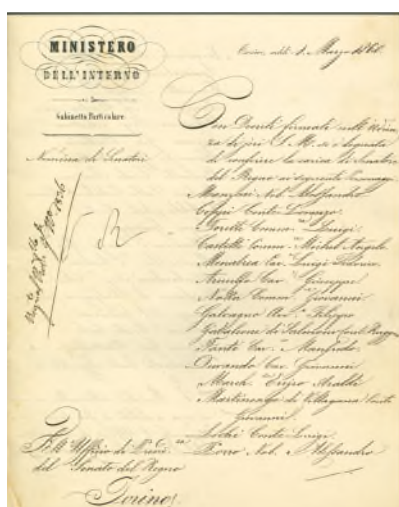 MINISTERO
DELL'INTERNO
Gabinetto Particolare
Nomina di Senatori
Torino, addì 1. Marzo 1860
Con Decreti firmati nell'
di jeri S. M. si è degnata
di conferire la carica di Senatore
del Regno ai seguenti Personaggi
Manzoni Nob. Alessandro
Conte Lorenzo
Torelli Comm. Luigi
Castelli Comm. Michel Angelo
Menabrea Cav. Luigi Federico
Arnulfo Cav. Giuseppe
Notta Comm. Giovanni
Galvagno Avv. Filippo
Gabaleone di Salmour Cont. Ruggero
Fanti Cav. Manfredo
Durando Cav. Giovanni
March. Araldi
Martinengo di Villagana Conte
Giovanni
Lochi Conte Luigi
Porro Nob. Alessandro
All'Uffizio di Presid.za
del Senato del Regno
Torino